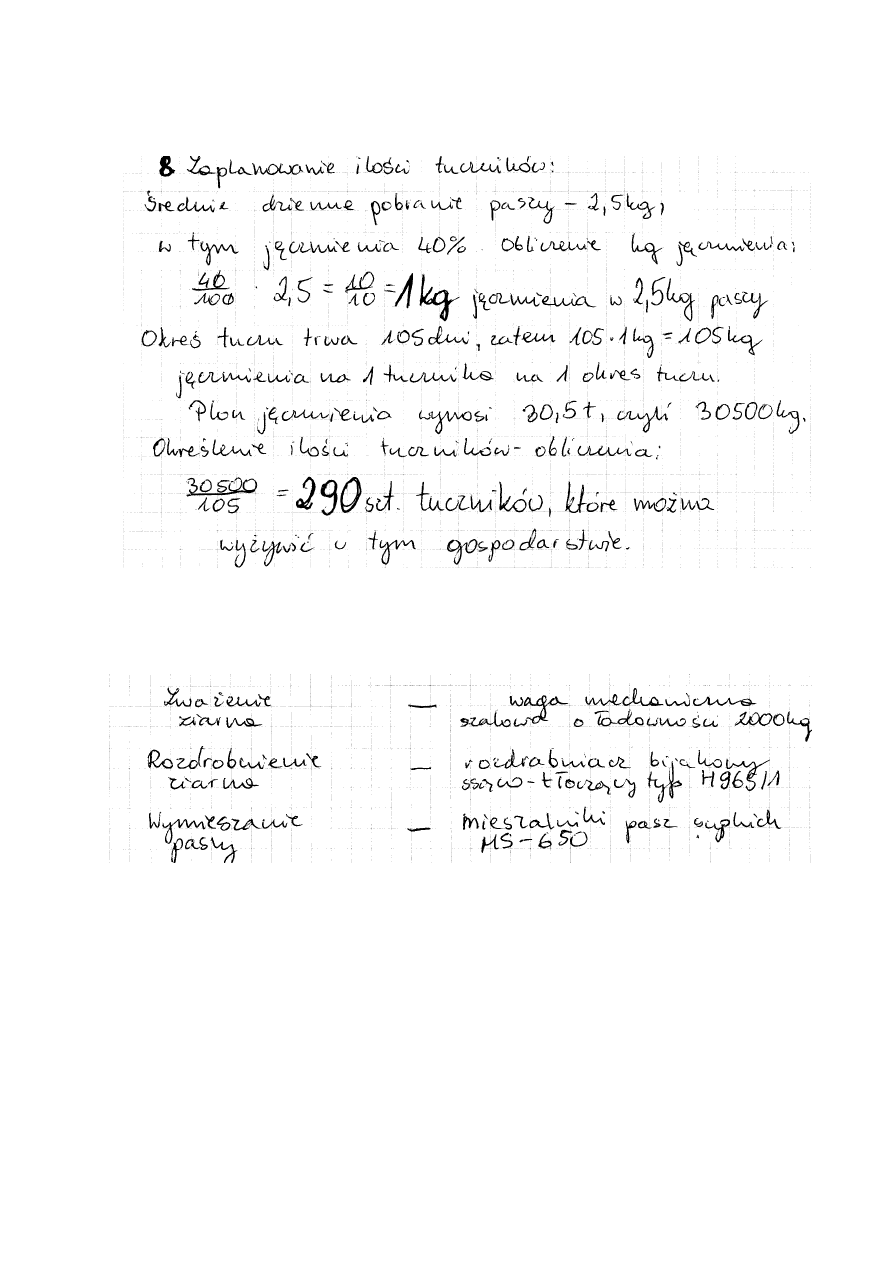 8 Zaplanowanie ilości tuczników:
Średnie dzienne pobranie paszy - 2,5kg,
w tym jęczmienia 40%. Obliczenie kg jęczmienia:
40/100 · 2,5 = 10/10 = 1kg jęczmienia w 2,5kg paszy
Okreś tuczu trwa 105 dni, zatem 105·1kg = 105kg
jęczmienia na 1 tucznika na 1 okres tuczu.
Plon jęczmienia wynosi 30,5t, czyli 30500kg.
Określenie ilości tuczników - obliczenia:
30500/105 = 290 szt. tuczników, które można
wyżywić w tym gospodarstwie.
Zważenie — waga mechaniczna
ziarna szalowa o ładowności 2000kg
Rozdrobnienie — rozdrabniacz bijakowy
ziarna ssąco-tłoczący typ H965/1
Wymieszanie — mieszalniki pasz sypkich
paszy MS-650